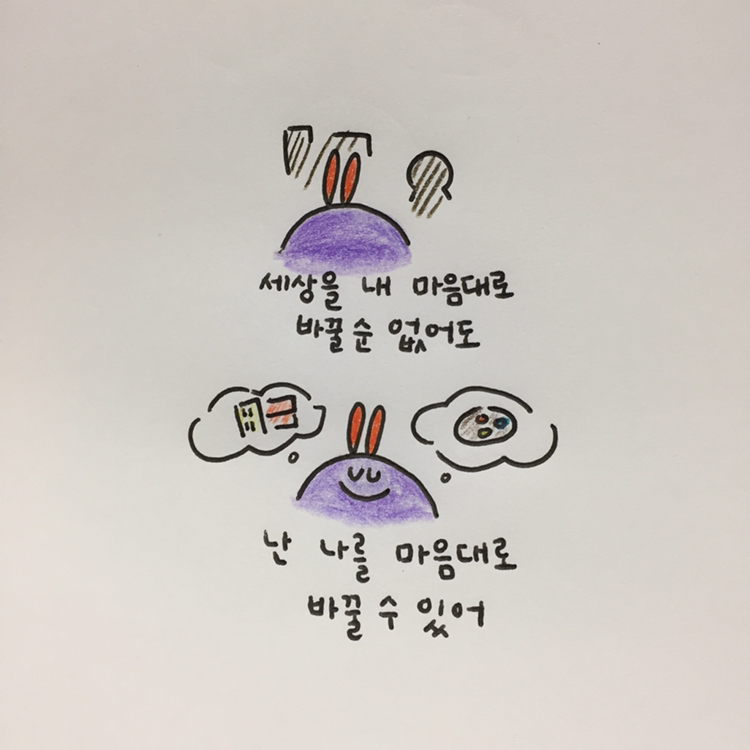 세상을 내 마음대로
바꿀순 없어도
난 나를 마음대로
바꿀 수 있어